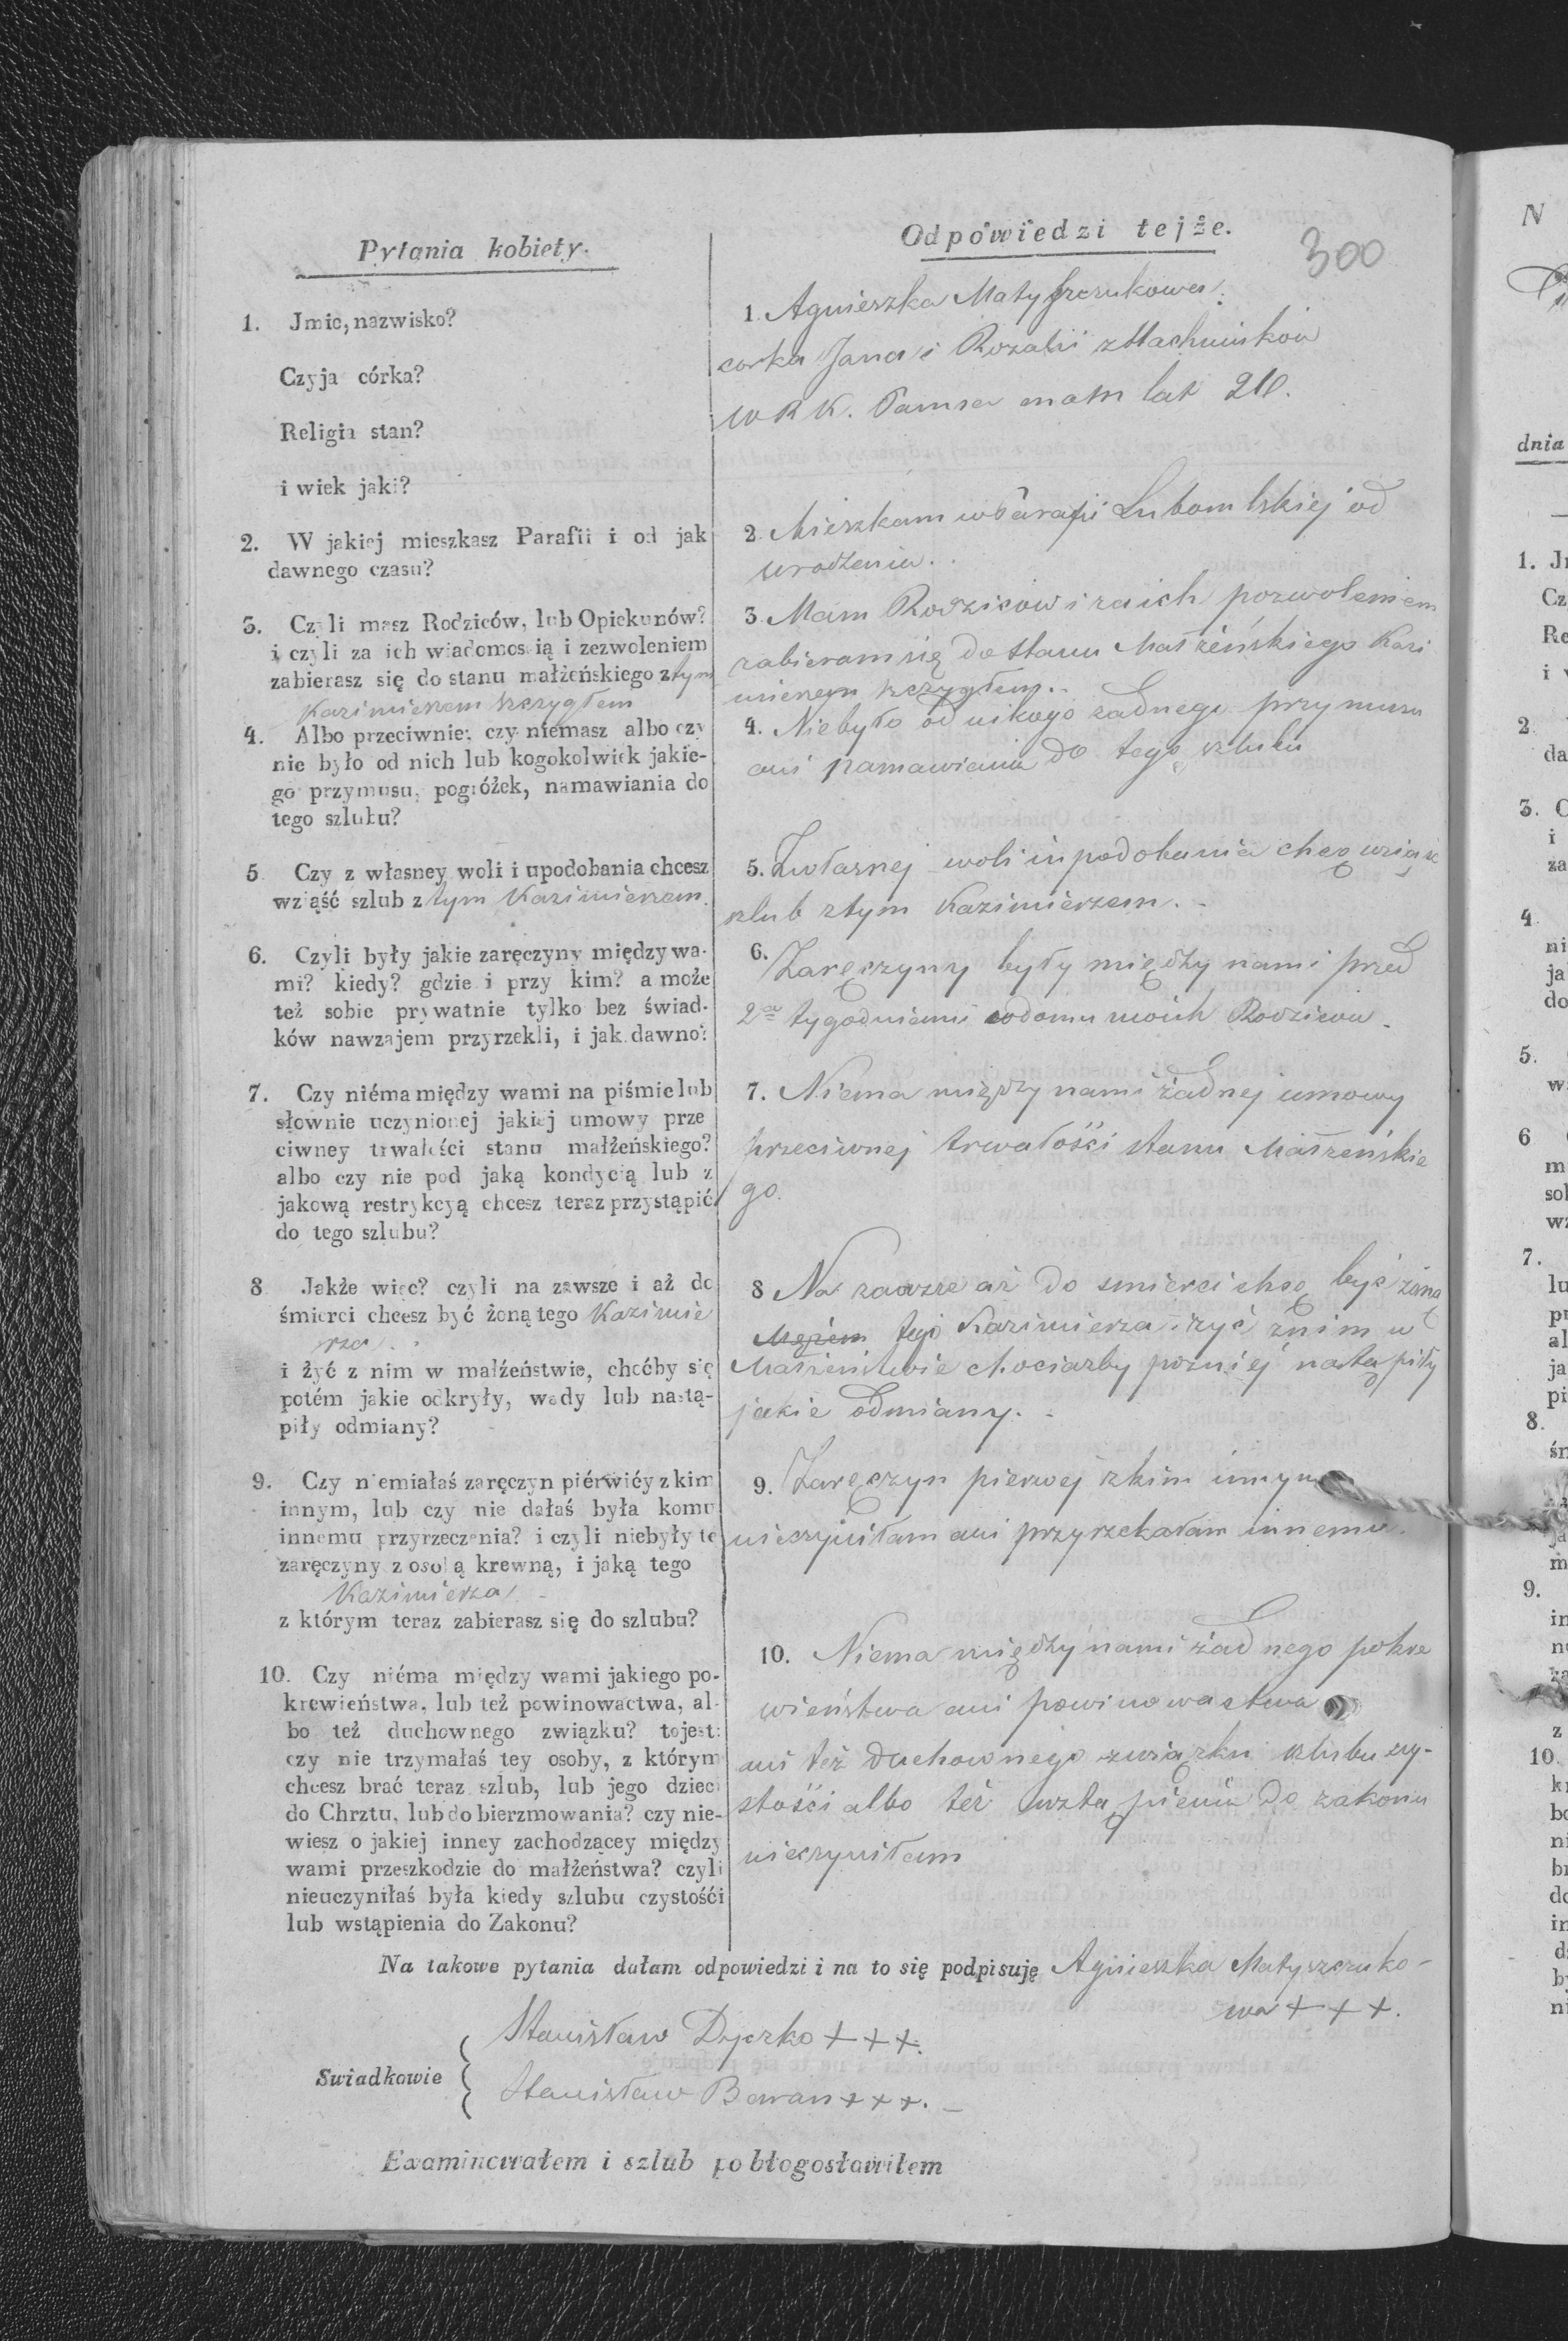 Pytania kobiety.
1. Jmie, nazwisko?
Czyja córka?
Religia stan?
i wiek jaki?
2. W jakiej mieszkasz Parafii i od jak
dawnego czasu?
3. Czyli masz Rodziców, lub Opiekunów?
i czyli za ich wiadomością i zezwoleniem
zabierasz się do stanu małżeńskiego z tym
Kazimierzem
4. Albo przeciwnie: czy niemasz albo czy
nie było od nich lub kogokolwiek jakie-
go przymusu, pogróżek, namawiania do
tego szlubu?
5 Czy z własney woli i upodobania chcesz
wziąść szlub z tym Kazimierzem.
6. Czyli były jakie zaręczyny między wa-
mi? kiedy? gdzie i przy kim? a może
też sobie prywatnie tylko bez świad-
ków nawzajem przyrzekli, i jak dawno?
7. Czy niéma między wami na piśmie lub
słownie uczynionej jakiej umowy prze
ciwney trwałości stanu małżeńskiego?
albo czy nie pod jaką kondycią lub z
jakową restrykcyą chcesz teraz przystąpić
do tego szlubu?
8 Jakże więc? czyli na zawsze i aż do
śmierci chcesz być żoną tego Kazimie
rza.
i żyć z nim w małżeństwie, choćby się
potém jakie odkryły, wady lub nastą-
piły odmiany?
9. Czy niemiałaś zaręczyn piérwiéy z kim
innym, lub czy nie dałaś była komu
innemu przyrzeczenia? i czyli niebyły te
zaręczyny z osobą krewną, i jaką tego
Kazimierza
z którym teraz zabierasz się do szlubu?
10. Czy niéma między wami jakiego po-
krewieństwa, lub też powinowactwa, al-
bo też duchownego związku? tojest:
czy nie trzymałaś tey osoby, z którym
chcesz brać teraz szlub, lub jego dzieci
do Chrztu, lub do bierzmowania? czy nie-
wiesz o jakiej inney zachodzącey między
wami przeszkodzie do małżeństwa? czyli
nieuczyniłaś była kiedy szlubu czystośći
lub wstąpienia do Zakonu?
Odpowiedzi tejże.
300
1. Agnieszka Matyszczukowa
corka Jana i Rozalii
W R K. Panna mam lat
2. Mieszkam w Parafii Lubomlskiej od
urodzenia.
3. Mam Rodzicow i za ich pozwoleniem
zabieram się do stanu Małżeńskiego Kazi
mierzem
4. Niebyło od nikogo żadnego przymusu
ani namawiania do tego szlubu
5. Zwłasnej woli i upodobania chcę wziąść
szlub z tym Kazimierzem.
6. Zaręczyny były między nami przed
2ma tygodniami w domu moich Rodzicow.
7. Niema między nami żadnej umowy
przeciwnej trwałości stanu Małżeńskie
go
8 Na zawsze aż do smierci chcę być żoną
Mężem tego Kazimierza i żyć z nim w
Małżeństwie chociażby pozniej nastąpiły
jakie odmiany.
9. Zaręczyn pierwej z kim innym
nieczyniłam ani przyrzekałam innemu.
10. Niema między nami żadnego pokre
wieństwa ani powinowactwa
ani też duchownego związku szlubu czy-
stości albo też wstąpienia do zakonu
nieczyniłam
Na takowe pytania dałam odpowiedzi i na to się podpisuję Agnieszka Matyszczuko-
wa + + +.
Swiadkowie
Stanisław Dyczko + + +.
Stanisław Baran + + +.
Examinowałem i szlub pobłogosławiłem
N
dnia